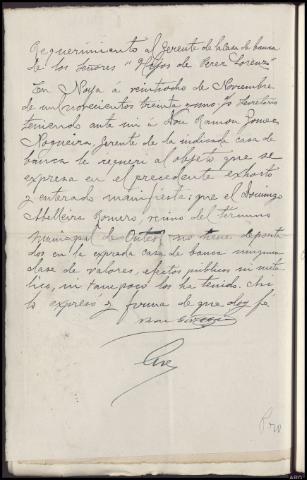 Requerimiento al Gerente de la casa de banca
de los Señores "Hijos de Perez Lorenzo"
En Noya á veintiocho de Noviembre
de mil novecientos treinta y uno, yo Secretario
teniendo ante mi á Don Ramon
Nogueira, Gerente de la indicada casa de
banca le requeri al objeto que se
expresa en el precedente exhorto
y enterado manifiesta: que el Domingo
Abelleira Romero, vecino del termino
municipal de Outes, no tiene deposita
dos en la expresada casa de banca ninguna
clase de valores, efectos publicos ni meta
lico, ni tampoco los ha tenido. Asi
lo expresó y firma de que doy fé